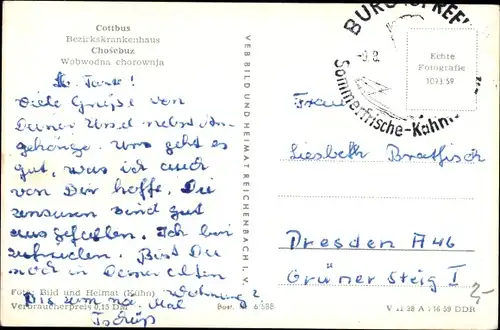 Cottbus
Bezirkskrankenhaus
Chośebuz
Wobwodna chorownja
Lb. Tante!
Viele Grüße von
Deiner Ursel nebst An-
gehörige. Uns geht es
gut, was ich auch
von Dir hoffe. Die
Zensuren sind gut
ausgefallen. Ich bin
zufrieden. Bist Du
noch in Deiner alten
Wohnung?
Bis zum nä. Mal
Tschüß
Foto: Bild und Heimat (Kühn)
Verbraucherpreis 0,15 DM
Best. 6/588
VEB BILD UND HEIMAT REICHENBACH I. V.
BURG (SPREEW
-9.8.
Sommerfrische-Kahn
Echte
Fotografie
1093/59
Frau
Liesbeth Bratfisch
Dresden A 46
Grüner Steig 1
V 11 28 A 716 59 DDR
2,-